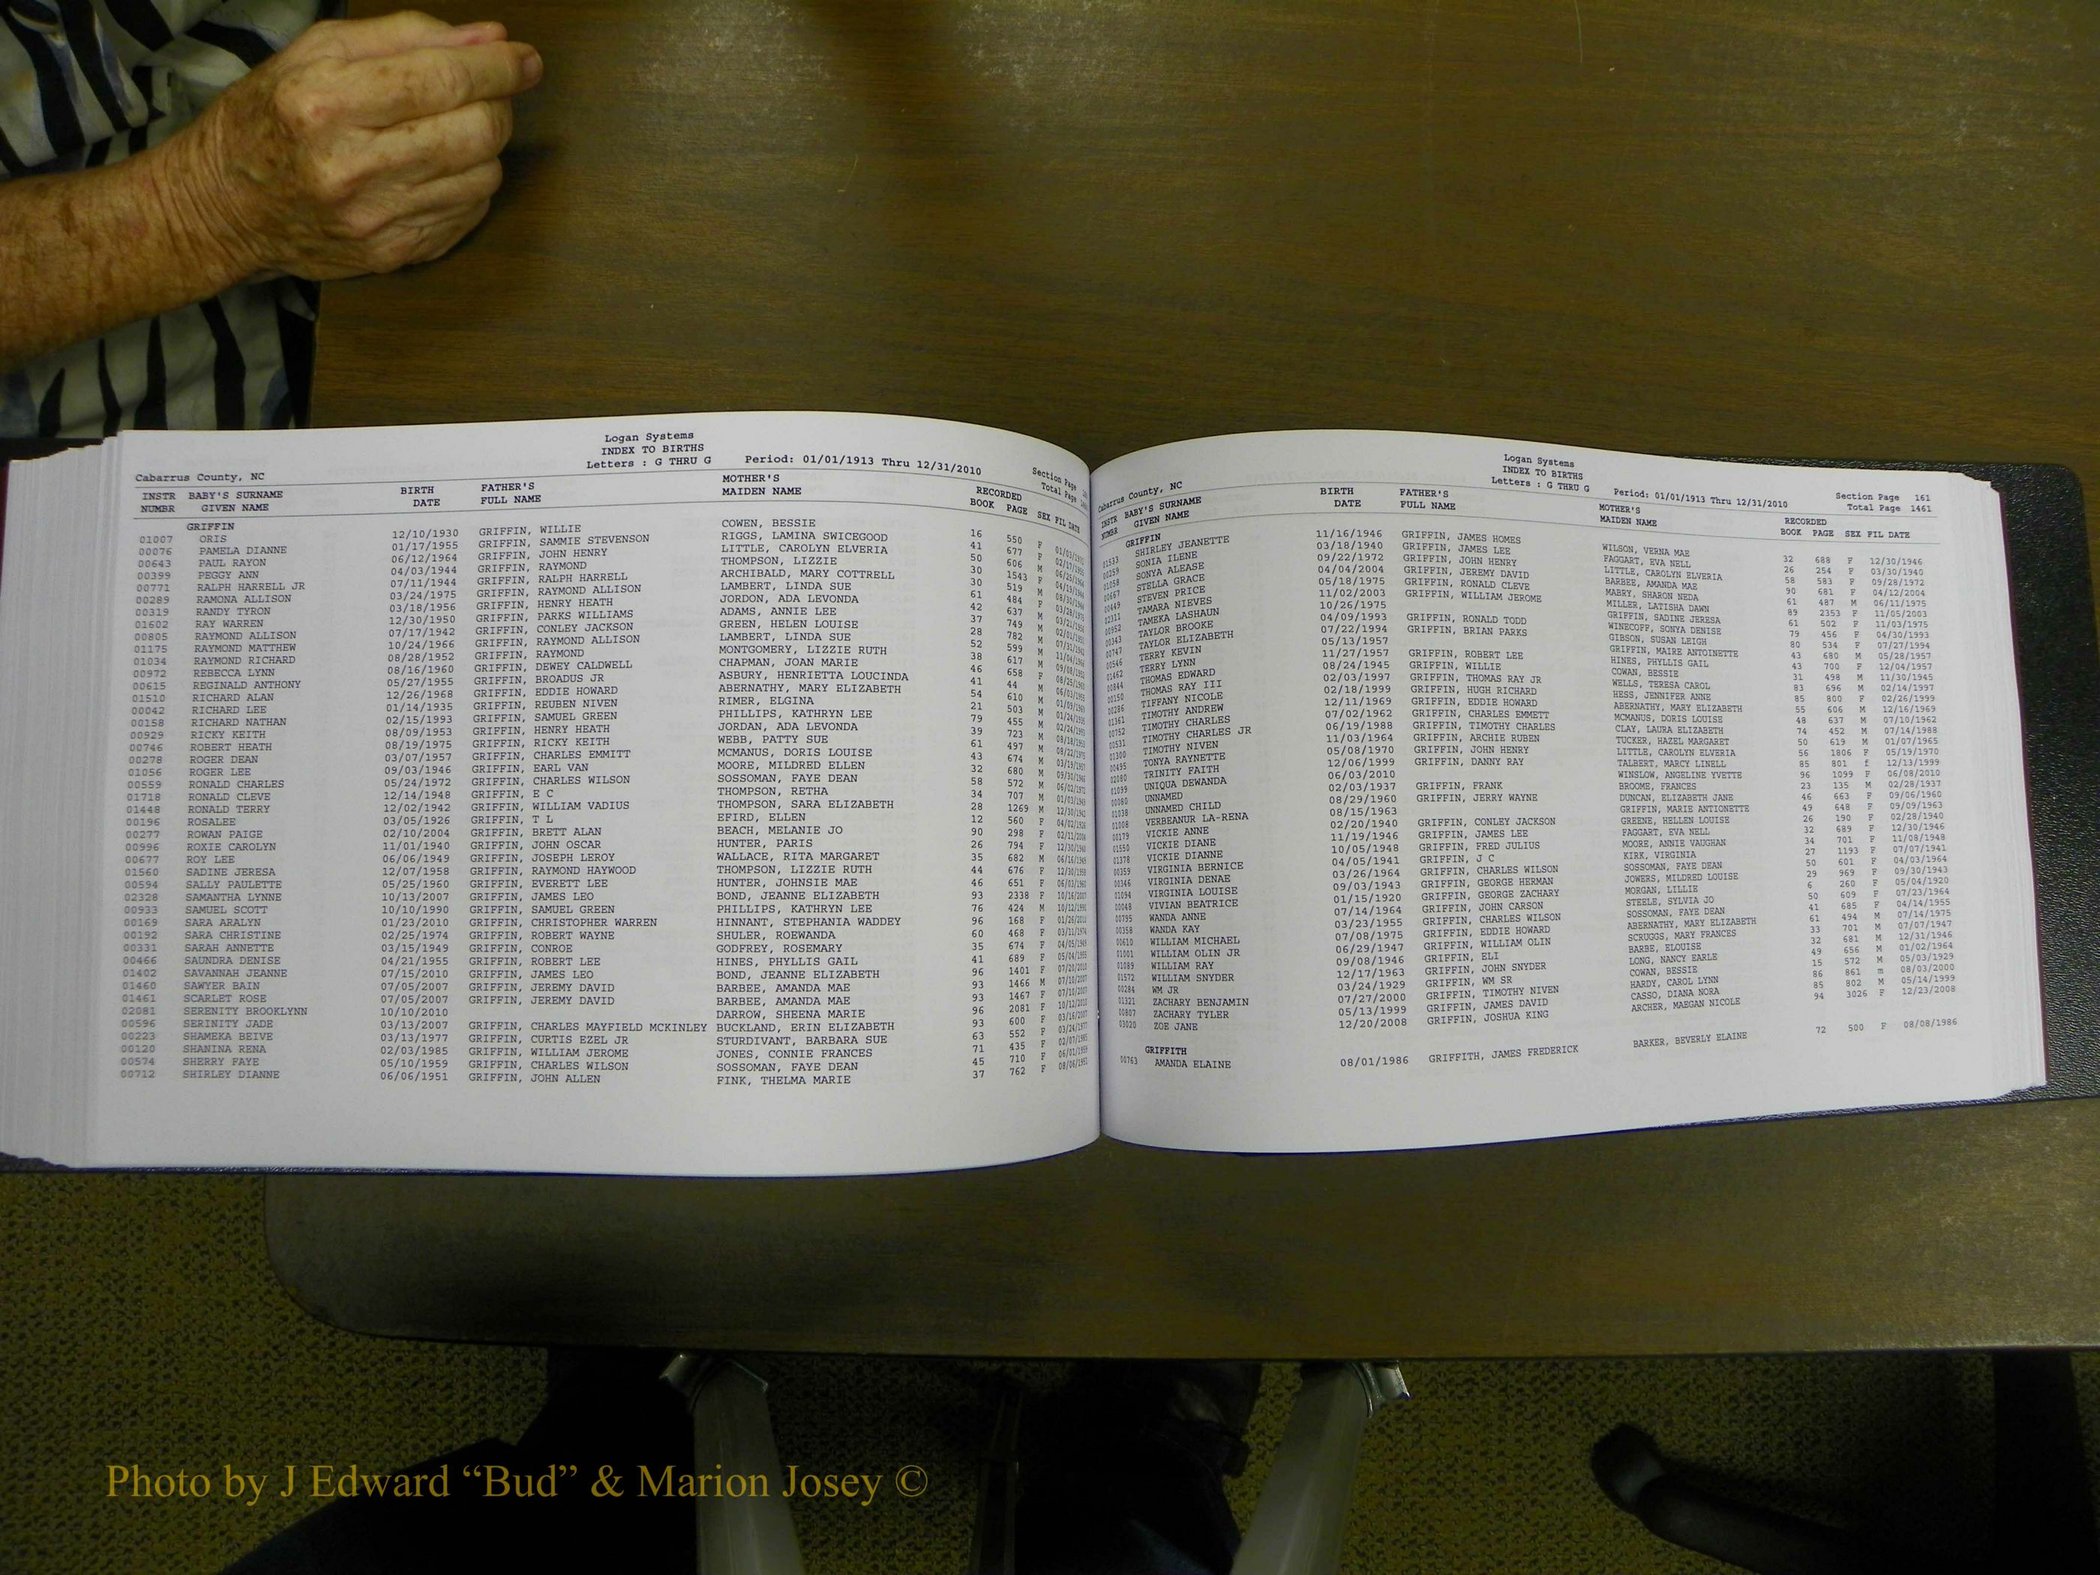 Logan Systems
INDEX TO BIRTHS
Cabarrus County, NC Letters : G THRU G Period: 01/01/1913 Thru 12/31/2010 Section Page
Total Page
INSTR BABY'S SURNAME BIRTH FATHER'S MOTHER'S RECORDED
NUMBR GIVEN NAME DATE FULL NAME MAIDEN NAME BOOK PAGE SEX FIL DATE
GRIFFIN
01007 ORIS 12/10/1930 GRIFFIN, WILLIE COWEN, BESSIE 16 550 F
00076 PAMELA DIANNE 01/17/1955 GRIFFIN, SAMMIE STEVENSON RIGGS, LAMINA SWICEGOOD 41 677 F
00643 PAUL RAYON 06/12/1964 GRIFFIN, JOHN HENRY LITTLE, CAROLYN ELVERIA 50 606 M
00399 PEGGY ANN 04/03/1944 GRIFFIN, RAYMOND THOMPSON, LIZZIE 30 1543 F
00771 RALPH HARRELL JR 07/11/1944 GRIFFIN, RALPH HARRELL ARCHIBALD, MARY COTTRELL 30 519 M
00289 RAMONA ALLISON 03/24/1975 GRIFFIN, RAYMOND ALLISON LAMBERT, LINDA SUE 61 484 F
00319 RANDY TYRON 03/18/1956 GRIFFIN, HENRY HEATH JORDON, ADA LEVONDA 42 637 M
01602 RAY WARREN 12/30/1950 GRIFFIN, PARKS WILLIAMS ADAMS, ANNIE LEE 37 749 M
00805 RAYMOND ALLISON 07/17/1942 GRIFFIN, CONLEY JACKSON GREEN, HELEN LOUISE 28 782 M
01175 RAYMOND MATTHEW 10/24/1966 GRIFFIN, RAYMOND ALLISON LAMBERT, LINDA SUE 52 599 M
01034 RAYMOND RICHARD 08/28/1952 GRIFFIN, RAYMOND MONTGOMERY, LIZZIE RUTH 38 617 M
00972 REBECCA LYNN 08/16/1960 GRIFFIN, DEWEY CALDWELL CHAPMAN, JOAN MARIE 46 658 F
00615 REGINALD ANTHONY 05/27/1955 GRIFFIN, BROADUS JR ASBURY, HENRIETTA LOUCINDA 41 44 M
01510 RICHARD ALAN 12/26/1968 GRIFFIN, EDDIE HOWARD ABERNATHY, MARY ELIZABETH 54 610 M
00042 RICHARD LEE 01/14/1935 GRIFFIN, REUBEN NIVEN RIMER, ELGINA 21 503 M
00158 RICHARD NATHAN 02/15/1993 GRIFFIN, SAMUEL GREEN PHILLIPS, KATHRYN LEE 79 455 M
00929 RICKY KEITH 08/09/1953 GRIFFIN, HENRY HEATH JORDAN, ADA LEVONDA 39 723 M
00746 ROBERT HEATH 08/19/1975 GRIFFIN, RICKY KEITH WEBB, PATTY SUE 61 497 M
00278 ROGER DEAN 03/07/1957 GRIFFIN, CHARLES EMMITT MCMANUS, DORIS LOUISE 43 674 M
01056 ROGER LEE 09/03/1946 GRIFFIN, EARL VAN MOORE, MILDRED ELLEN 32 680 M
00559 RONALD CHARLES 05/24/1972 GRIFFIN, CHARLES WILSON SOSSOMAN, FAYE DEAN 58 572 M
01718 RONALD CLEVE 12/14/1948 GRIFFIN, E C THOMPSON, RETHA 34 707 M
01448 RONALD TERRY 12/02/1942 GRIFFIN, WILLIAM VADIUS THOMPSON, SARA ELIZABETH 28 1269 M
00196 ROSALEE 03/05/1926 GRIFFIN, T L EFIRD, ELLEN 12 560 F
00277 ROWAN PAIGE 02/10/2004 GRIFFIN, BRETT ALAN BEACH, MELANIE JO 90 298 F
00996 ROXIE CAROLYN 11/01/1940 GRIFFIN, JOHN OSCAR HUNTER, PARIS 26 794 F
00677 ROY LEE 06/06/1949 GRIFFIN, JOSEPH LEROY WALLACE, RITA MARGARET 35 682 M
01560 SADINE JERESA 12/07/1958 GRIFFIN, RAYMOND HAYWOOD THOMPSON, LIZZIE RUTH 44 676 F
00594 SALLY PAULETTE 05/25/1960 GRIFFIN, EVERETT LEE HUNTER, JOHNSIE MAE 46 651 F
02328 SAMANTHA LYNNE 10/13/2007 GRIFFIN, JAMES LEO BOND, JEANNE ELIZABETH 93 2338 F
00933 SAMUEL SCOTT 10/10/1990 GRIFFIN, SAMUEL GREEN PHILLIPS, KATHRYN LEE 76 424 M
00169 SARA ARALYN 01/23/2010 GRIFFIN, CHRISTOPHER WARREN HINNANT, STEPHANIA WADDEY 96 168 F
00192 SARA CHRISTINE 02/25/1974 GRIFFIN, ROBERT WAYNE SHULER, ROEWANDA 60 468 F
00331 SARAH ANNETTE 03/15/1949 GRIFFIN, CONROE GODFREY, ROSEMARY 35 674 F
00466 SAUNDRA DENISE 04/21/1955 GRIFFIN, ROBERT LEE HINES, PHYLLIS GAIL 41 689 F
01402 SAVANNAH JEANNE 07/15/2010 GRIFFIN, JAMES LEO BOND, JEANNE ELIZABETH 96 1401 F
01460 SAWYER BAIN 07/05/2007 GRIFFIN, JEREMY DAVID BARBEE, AMANDA MAE 93 1466 M
01461 SCARLET ROSE 07/05/2007 GRIFFIN, JEREMY DAVID BARBEE, AMANDA MAE 93 1467 F
02081 SERENITY BROOKLYNN 10/10/2010 DARROW, SHEENA MARIE 96 2081 F
00596 SERINITY JADE 03/13/2007 GRIFFIN, CHARLES MAYFIELD MCKINLEY BUCKLAND, ERIN ELIZABETH 93 600 F
00223 SHAMEKA BEIVE 03/13/1977 GRIFFIN, CURTIS EZEL JR STURDIVANT, BARBARA SUE 63 552 F
00120 SHANINA RENA 02/03/1985 GRIFFIN, WILLIAM JEROME JONES, CONNIE FRANCES 71 435 F
00574 SHERRY FAYE 05/10/1959 GRIFFIN, CHARLES WILSON SOSSOMAN, FAYE DEAN 45 710 F
00712 SHIRLEY DIANNE 06/06/1951 GRIFFIN, JOHN ALLEN FINK, THELMA MARIE 37 762 F
Logan Systems
INDEX TO BIRTHS
Cabarrus County, NC Letters : G THRU G Period: 01/01/1913 Thru 12/31/2010 Section Page 161
Total Page 1461
INSTR BABY'S SURNAME BIRTH FATHER'S MOTHER'S RECORDED
NUMBR GIVEN NAME DATE FULL NAME MAIDEN NAME BOOK PAGE SEX FIL DATE
GRIFFIN
01533 SHIRLEY JEANETTE 11/16/1946 GRIFFIN, JAMES HOMES WILSON, VERNA MAE 32 688 F 12/30/1946
00259 SONIA ILENE 03/18/1940 GRIFFIN, JAMES LEE FAGGART, EVA NELL 26 254 F 03/30/1940
01058 SONYA ALEASE 09/22/1972 GRIFFIN, JOHN HENRY LITTLE, CAROLYN ELVERIA 58 583 F 09/28/1972
00667 STELLA GRACE 04/04/2004 GRIFFIN, JEREMY DAVID BARBEE, AMANDA MAE 90 681 F 04/12/2004
00449 STEVEN PRICE 05/18/1975 GRIFFIN, RONALD CLEVE MABRY, SHARON NEDA 61 487 M 06/11/1975
02311 TAMARA NIEVES 11/02/2003 GRIFFIN, WILLIAM JEROME MILLER, LATISHA DAWN 89 2353 F 11/05/2003
00952 TAMEKA LASHAUN 10/26/1975 GRIFFIN, SADINE JERESA 61 502 F 11/03/1975
00343 TAYLOR BROOKE 04/09/1993 GRIFFIN, RONALD TODD WINECOFF, SONYA DENISE 79 456 F 04/30/1993
00747 TAYLOR ELIZABETH 07/22/1994 GRIFFIN, BRIAN PARKS GIBSON, SUSAN LEIGH 80 534 F 07/27/1994
00546 TERRY KEVIN 05/13/1957 GRIFFIN, MAIRE ANTOINETTE 43 680 M 05/28/1957
01462 TERRY LYNN 11/27/1957 GRIFFIN, ROBERT LEE HINES, PHYLLIS GAIL 43 700 F 12/04/1957
00844 THOMAS EDWARD 08/24/1945 GRIFFIN, WILLIE COWAN, BESSIE 31 498 M 11/30/1945
00150 THOMAS RAY III 02/03/1997 GRIFFIN, THOMAS RAY JR WELLS, TERESA CAROL 83 696 M 02/14/1997
00286 TIFFANY NICOLE 02/18/1999 GRIFFIN, HUGH RICHARD HESS, JENNIFER ANNE 85 800 F 02/26/1999
01361 TIMOTHY ANDREW 12/11/1969 GRIFFIN, EDDIE HOWARD ABERNATHY, MARY ELIZABETH 55 606 M 12/16/1969
00752 TIMOTHY CHARLES 07/02/1962 GRIFFIN, CHARLES EMMETT MCMANUS, DORIS LOUISE 48 637 M 07/10/1962
00531 TIMOTHY CHARLES JR 06/19/1988 GRIFFIN, TIMOTHY CHARLES CLAY, LAURA ELIZABETH 74 452 M 07/14/1988
01300 TIMOTHY NIVEN 11/03/1964 GRIFFIN, ARCHIE RUBEN TUCKER, HAZEL MARGARET 50 619 M 01/07/1965
00495 TONYA RAYNETTE 05/08/1970 GRIFFIN, JOHN HENRY LITTLE, CAROLYN ELVERIA 56 1806 F 05/19/1970
02080 TRINITY FAITH 12/06/1999 GRIFFIN, DANNY RAY TALBERT, MARCY LINELL 85 801 f 12/13/1999
01099 UNIQUA DEWANDA 06/03/2010 WINSLOW, ANGELINE YVETTE 96 1099 F 06/08/2010
00080 UNNAMED 02/03/1937 GRIFFIN, FRANK BROOME, FRANCES 23 135 M 02/28/1937
01038 UNNAMED CHILD 08/29/1960 GRIFFIN, JERRY WAYNE DUNCAN, ELIZABETH JANE 46 663 F 09/06/1960
01008 VERBEANUR LA-RENA 08/15/1963 GRIFFIN, MARIE ANTIONETTE 49 648 F 09/09/1963
00179 VICKIE ANNE 02/20/1940 GRIFFIN, CONLEY JACKSON GREENE, HELLEN LOUISE 26 190 F 02/28/1940
01550 VICKIE DIANE 11/19/1946 GRIFFIN, JAMES LEE FAGGART, EVA NELL 32 689 F 12/30/1946
02378 VICKIE DIANNE 10/05/1948 GRIFFIN, FRED JULIUS MOORE, ANNIE VAUGHAN 34 701 F 11/08/1948
00359 VIRGINIA BERNICE 04/05/1941 GRIFFIN, J C KIRK, VIRGINIA 27 1193 F 07/07/1941
00346 VIRGINIA DENAE 03/26/1964 GRIFFIN, CHARLES WILSON SOSSOMAN, FAYE DEAN 50 601 F 04/03/1964
01094 VIRGINIA LOUISE 09/03/1943 GRIFFIN, GEORGE HERMAN JOWERS, MILDRED LOUISE 29 969 F 09/30/1943
00048 VIVIAN BEATRICE 01/15/1920 GRIFFIN, GEORGE ZACHARY MORGAN, LILLIE 6 260 F 05/04/1920
00795 WANDA ANNE 07/14/1964 GRIFFIN, JOHN CARSON STEELE, SYLVIA JO 50 609 F 07/23/1964
00358 WANDA KAY 03/23/1955 GRIFFIN, CHARLES WILSON SOSSOMAN, FAYE DEAN 41 685 F 04/14/1955
00610 WILLIAM MICHAEL 07/08/1975 GRIFFIN, EDDIE HOWARD ABERNATHY, MARY ELIZABETH 61 494 M 07/14/1975
01001 WILLIAM OLIN JR 06/29/1947 GRIFFIN, WILLIAM OLIN SCRUGGS, MARY FRANCES 33 701 M 07/07/1947
01089 WILLIAM RAY 09/08/1946 GRIFFIN, ELI BARBE, ELOUISE 32 681 M 12/31/1946
01572 WILLIAM SNYDER 12/17/1963 GRIFFIN, JOHN SNYDER LONG, NANCY EARLE 49 656 M 01/02/1964
00284 WM JR 03/24/1929 GRIFFIN, WM SR COWAN, BESSIE 15 572 M 05/03/1929
01321 ZACHARY BENJAMIN 07/27/2000 GRIFFIN, TIMOTHY NIVEN HARDY, CAROL LYNN 86 861 m 08/03/2000
00807 ZACHARY TYLER 05/13/1999 GRIFFIN, JAMES DAVID CASSO, DIANA NORA 85 802 M 05/14/1999
03020 ZOE JANE 12/20/2008 GRIFFIN, JOSHUA KING ARCHER, MAEGAN NICOLE 94 3026 F 12/23/2008
GRIFFITH
00763 AMANDA ELAINE 08/01/1986 GRIFFITH, JAMES FREDERICK BARKER, BEVERLY ELAINE 72 500 F 08/08/1986
Photo by J Edward “Bud” & Marion Josey ©